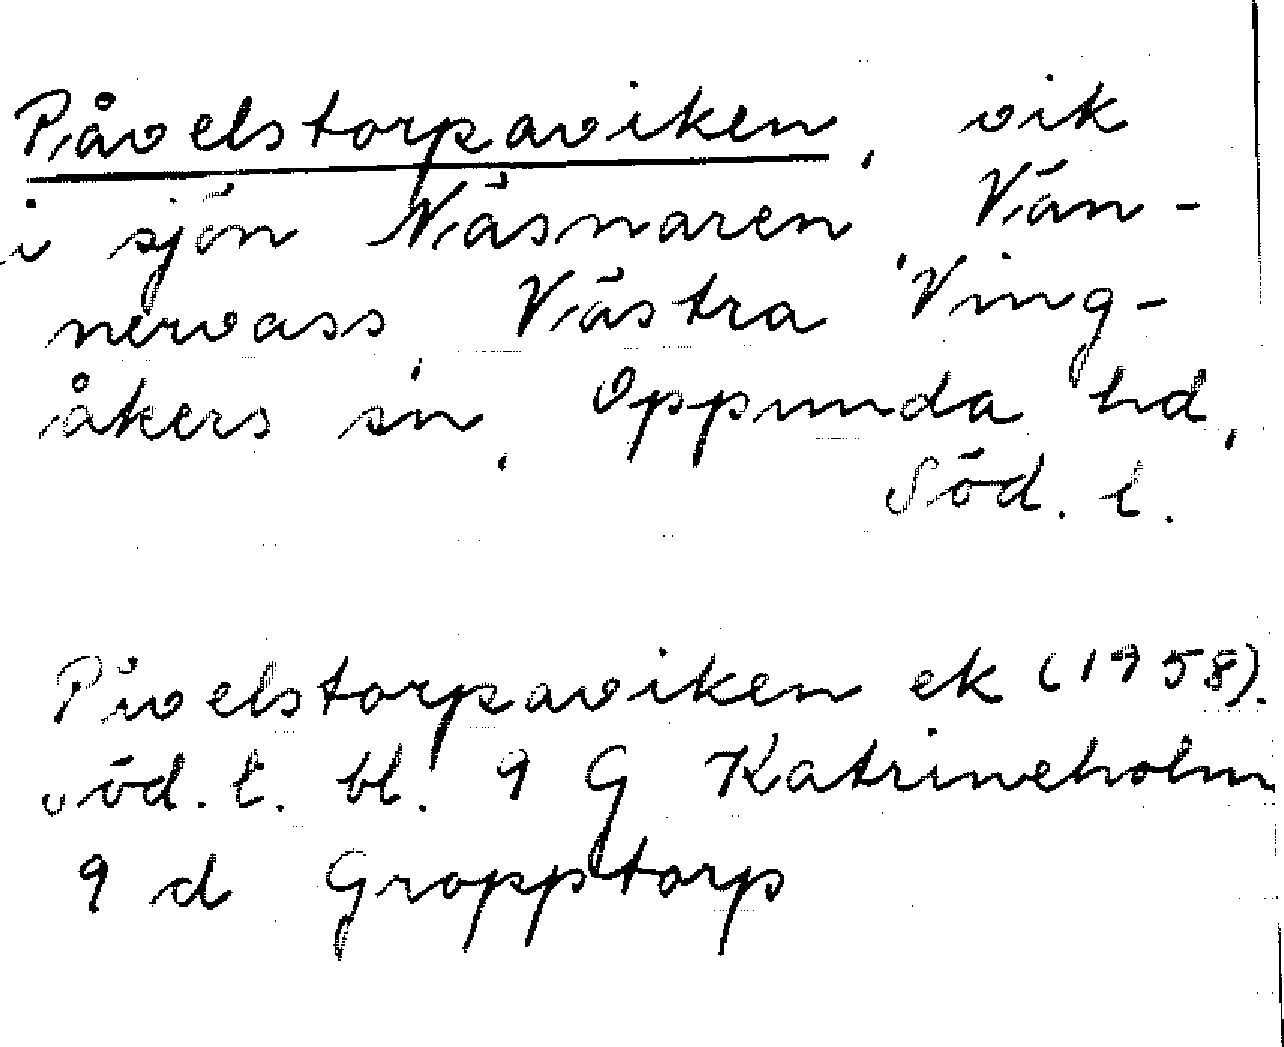 Påvelstorpaviken, vik
i sjön Näsnaren, Vän-
nervass, Västra Ving-
åkers sn, Oppunda hd,
Söd. l.
Påvelstorpaviken ek (1958).
Söd. l. bl. 9 G Katrineholm
9 d Gropptorp